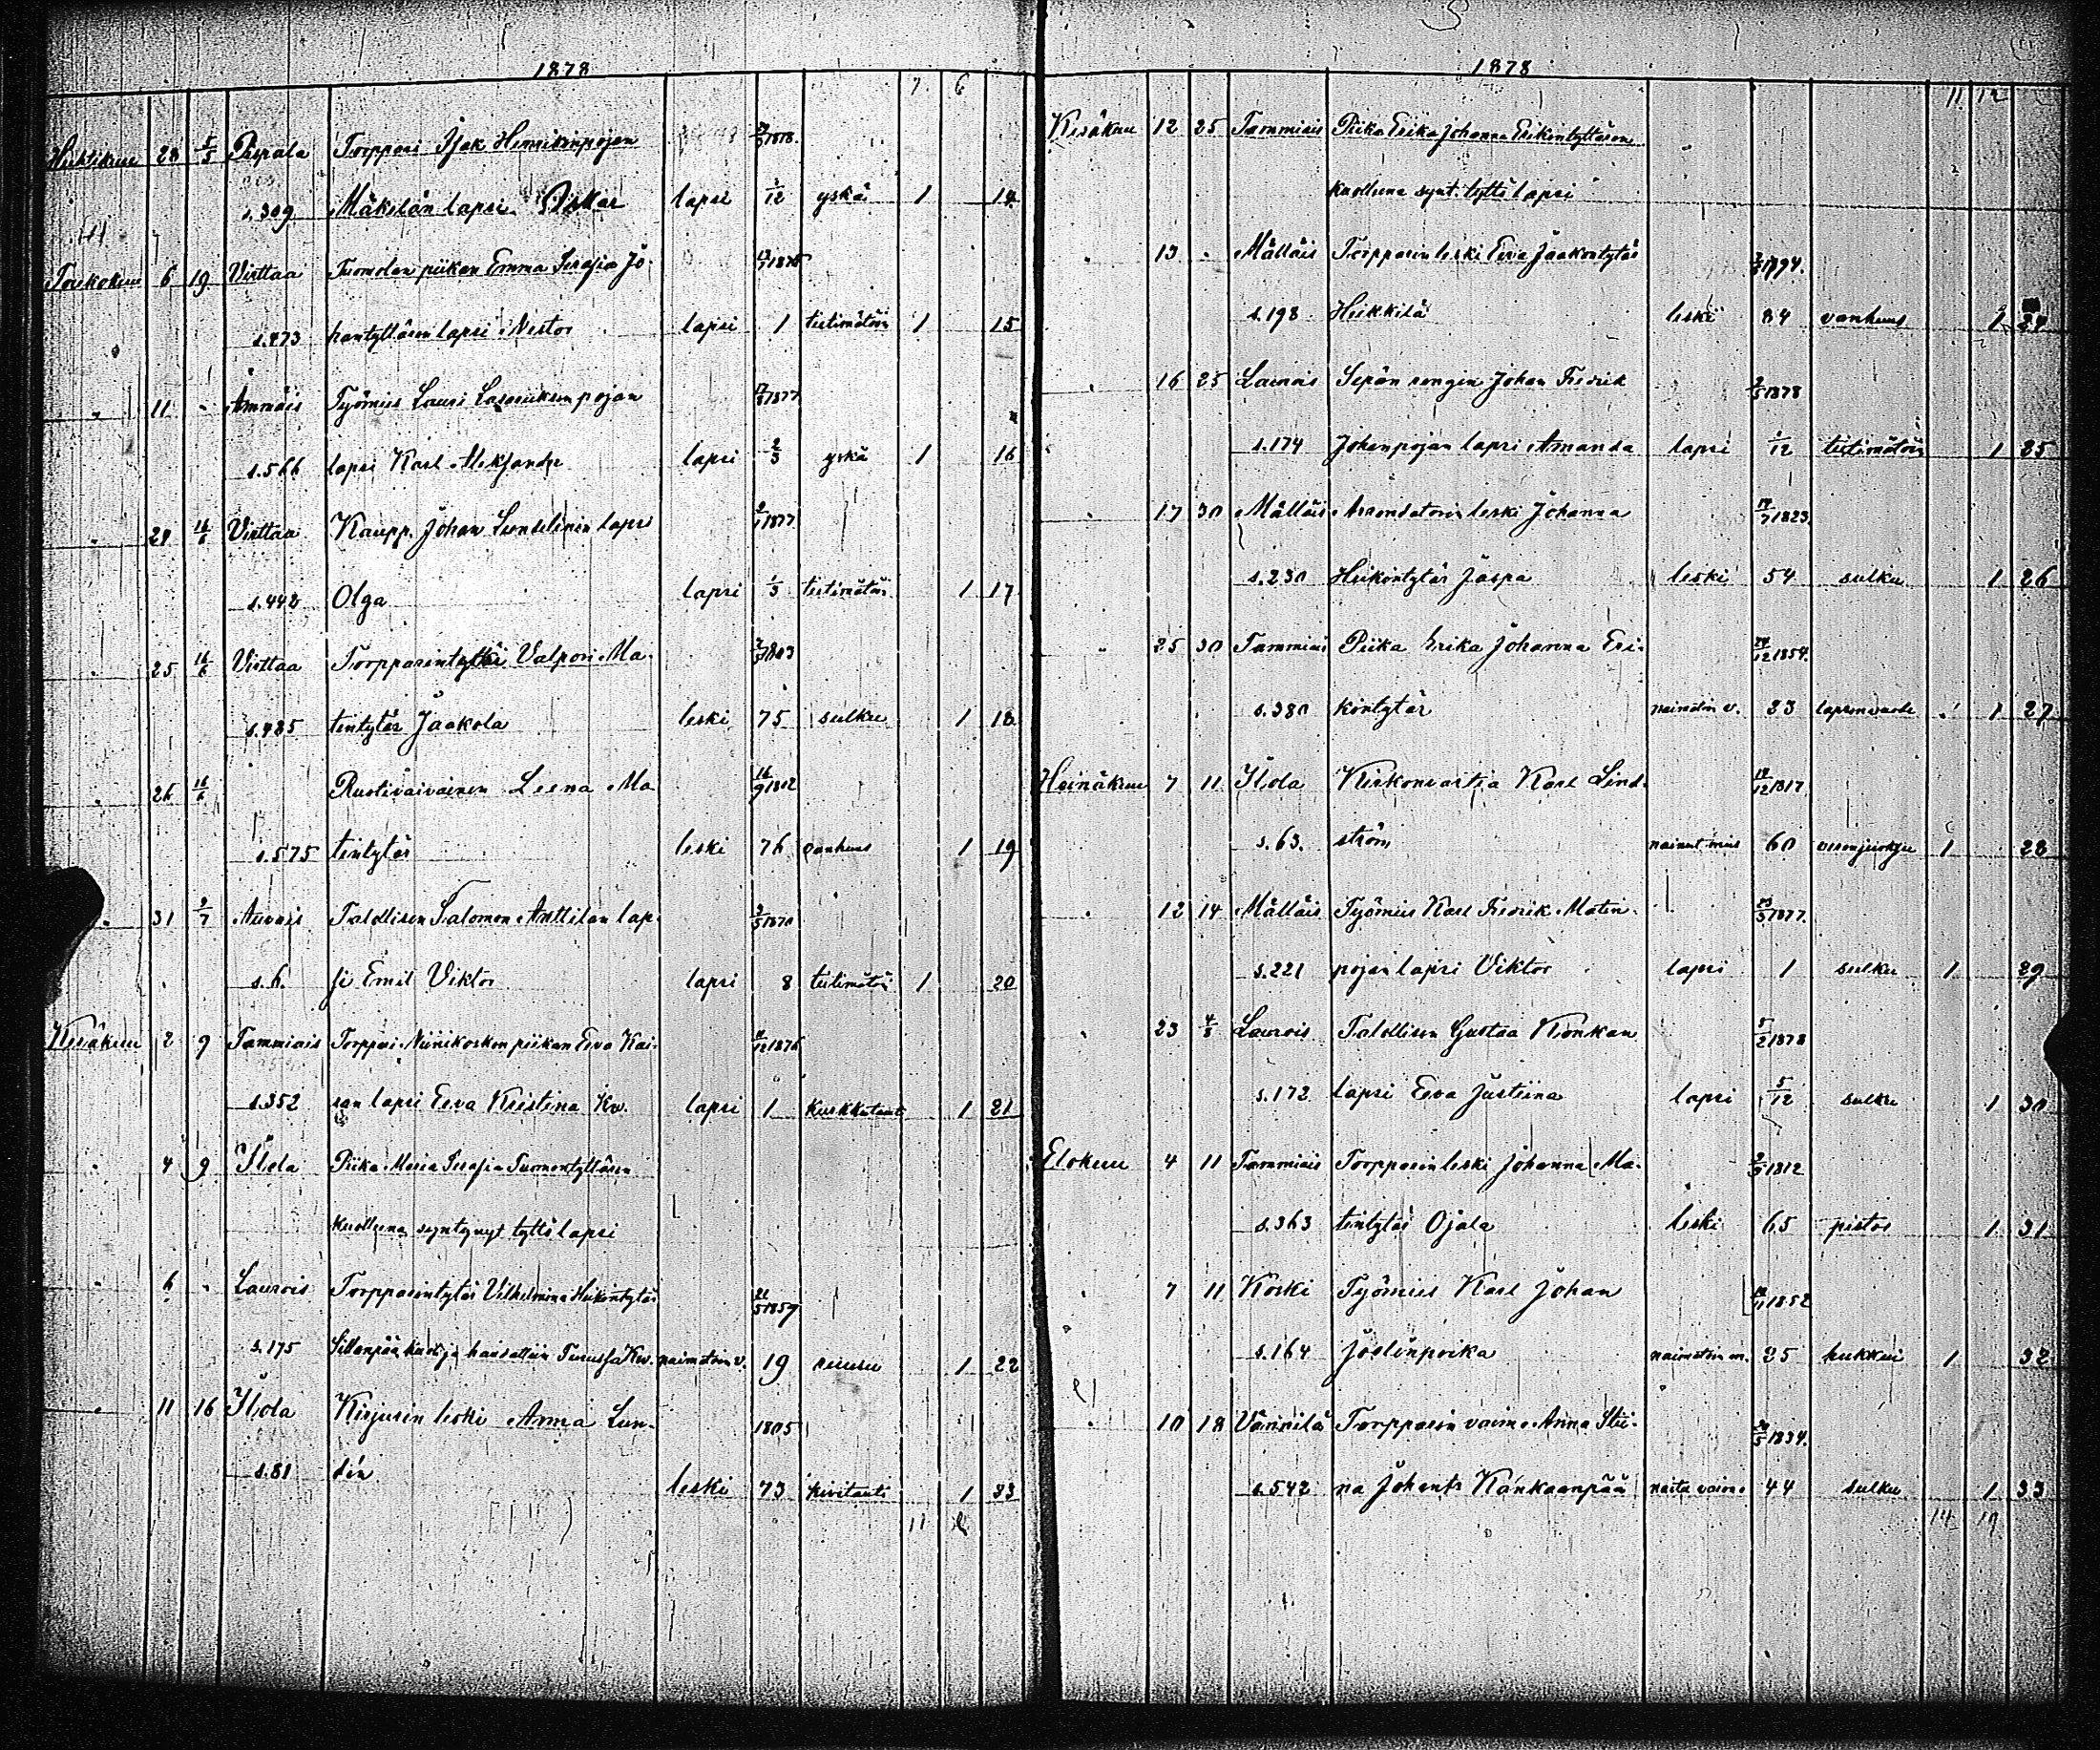 1878
7. 6
Huhtikuu 28 5/5 Pispala Torppari Isak Henrikinpojan 1878.
s.309 Mäkelän lapsi Oskar lapsi 1/12 yskä 1 14
Toukokuu 6 19 Virttaa Tuomolan piikan Emma Serafia Jo-
s.473 hantyttären lapsi Nestor lapsi 1 tietimätöin 1 15
" 11 " Ammäis Työmies Lauri Lasaruksen pojan 1877
s.566 lapsi Karl Aleksander lapsi 2/3 yskä 1 16
" 16/6 Virttaa Kaupp. Johan Lundelinin lapsi 1877
s.442 Olga lapsi 1/3 tietimätöin 1 17
" 25 16/6 Virttaa Torpparintyttö Valpori Ma-
s.485 tintytär Jaakola leski 75 sulku 1 18
" 26 16/6 Ruotivaivainen Leena Ma 16/9 1802
s.575 tintytär leski 76 vanhuus 1 19
" 31 2/7 Auvais Talollisen Salomon Anttilan lap- 1870
s.6. si Emil Viktor lapsi 8 tietimätöin 1 20
Kesäkuu 2 9 Tammiais Torppari Niinikosken piikan Eeva Kai- 1876
s.352 san lapsi Eeva Kristina Kv. lapsi 1 kurkkutauti 1 21
" 4 9 Ylola Piika Maria Serafia Tuomontyttären
kuolleena syntynyt tyttö lapsi
" 6 " Laurois Torpparintytär Vilhelmina Heikintytär 21/5 1859
s.175 Sillanpää haudattiin Turussa Kv. naimatoin v. 19 1 22
" 11 16 Ylola Kirjurin leski Anna Lun- 1805
s.81 dén leski 73 kivitauti 1 23
11
1878
11 12
Kesäkuu 12 25 Tammiais Piika Erika Johanna Erikintyttären
kuolleena synt. tyttö lapsi
" 13 " Mälläis Torpparin leski Eeva Jaakontytär 1794.
s.198 Heikkilä leski 84 vanhuus 1 24
" 16 25 Laurois Sepän rengin Johan Fredrik 1878
s.174 Johanpojan lapsi Amanda lapsi 1/12 tietimätöin 1 25
" 17 30 Mälläis Arrendatorin leski Johanna 1823
s.230 Heikintytär Jaspa leski 54 sulku 1 26
" 25 30 Tammiais Piika Erika Johanna Eri- 24/12 1854.
s.380 kintytär naimatoin v. 23 lapsenvuode 1 27
Heinäkuu 7 11 Ylola Kirkonvartia Karl Lind- 1817
s.63. ström nainut mies 60 verenjuoksu 1 28
" 12 14 Mälläis Työmies Karl Fredrik Matin- 1877.
s.221 pojan lapsi Viktor lapsi 1 sulku 1 29
" 23 4/8 Laurois Talollisen Gustaa Konkan 5/2 1878
s.172 lapsi Eeva Justiina lapsi 5/12 sulku 1 30
Elokuu 4 11 Tammiais Torpparin leski Johanna Ma- 1812
s.363 tintytär Ojala leski 65 pistos 1 31
" 7 11 Koski Työmies Karl Johan 1852
s.164 Joelinpoika naimatoin m. 25 hukkui 1 32
" 10 18 Vännilä Torpparin vaimo Anna Stii- 1834.
s.542 na Johant. Kankaanpää naitu vaimo 44 sulku 1 33
14 19